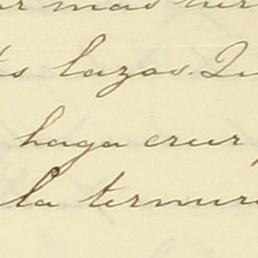 mas
lazos. Qu
haga creer
la ternura